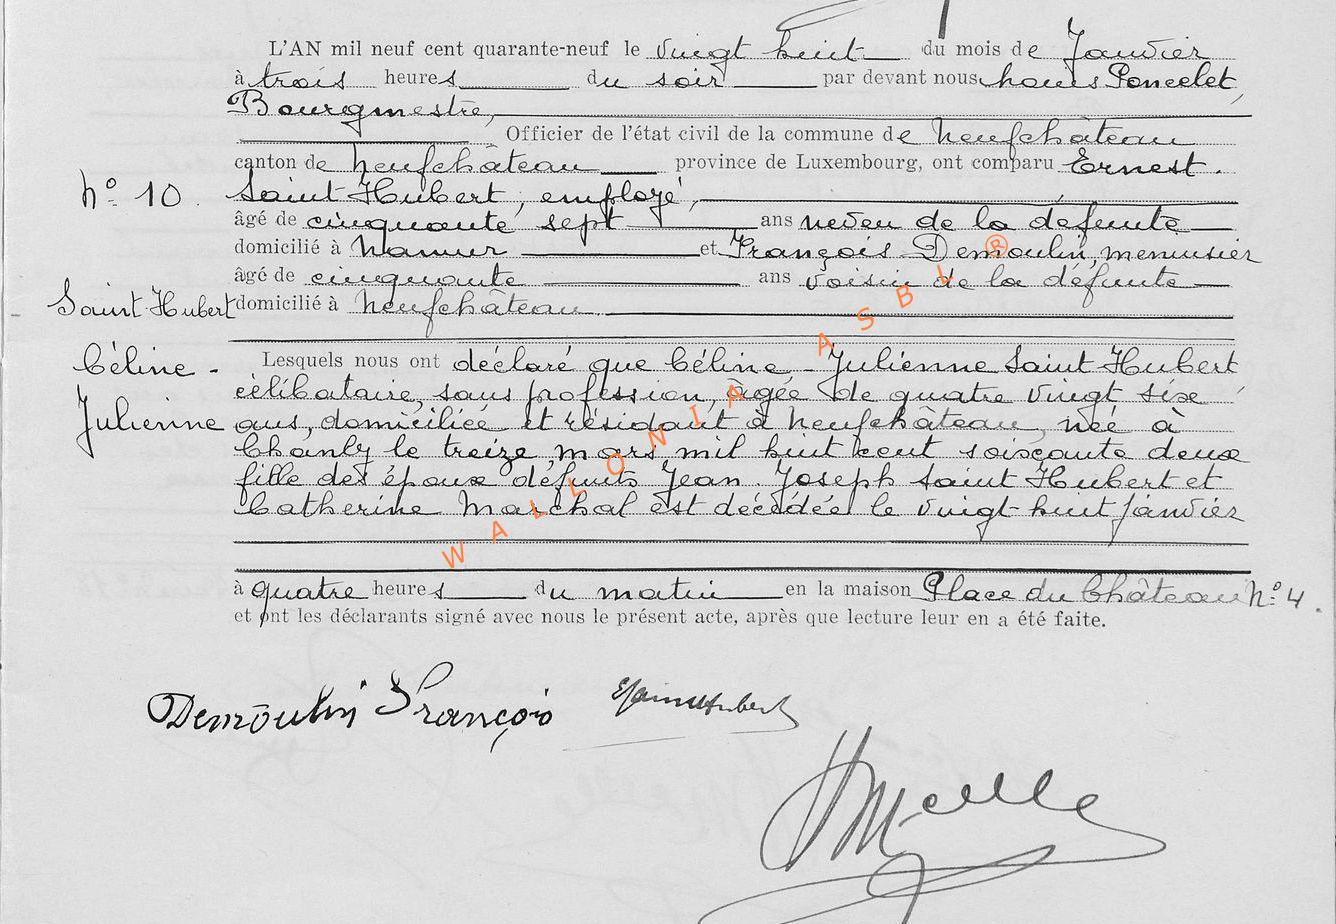 L'AN mil neuf cent quarante-neuf le vingt huit du mois de Janvier
à trois heures du soir par devant nous Louis Poncelet,
Bourgmestre,
Officier de l'état civil de la commune de Neufchâteau
canton de Neufchâteau province de Luxembourg, ont comparu Ernest
N° 10. Saint-Hubert, employé,
âgé de cinquante sept ans neveu de la défunte
domicilié à Namur et François Demoulin, menuisier
âgé de cinquante ans voisin de la défunte
Saint-Hubert domicilié à Neufchâteau
Céline - Lesquels nous ont déclaré que Céline - Julienne Saint-Hubert
célibataire, sans profession, âgée de quatre vingt six
Julienne ans, domiciliée et résidant à Neufchâteau, née à
Chanly le treize mars mil huit cent soixante deux
fille des époux défunts Jean Joseph Saint-Hubert et
Catherine Marchal est décédée le vingt-huit janvier
à quatre heures du matin en la maison Place du Château N° 4.
et ont les déclarants signé avec nous le présent acte, après que lecture leur en a été faite.
Demoulin François ESaintHubert
WALLONIA ASBL ®